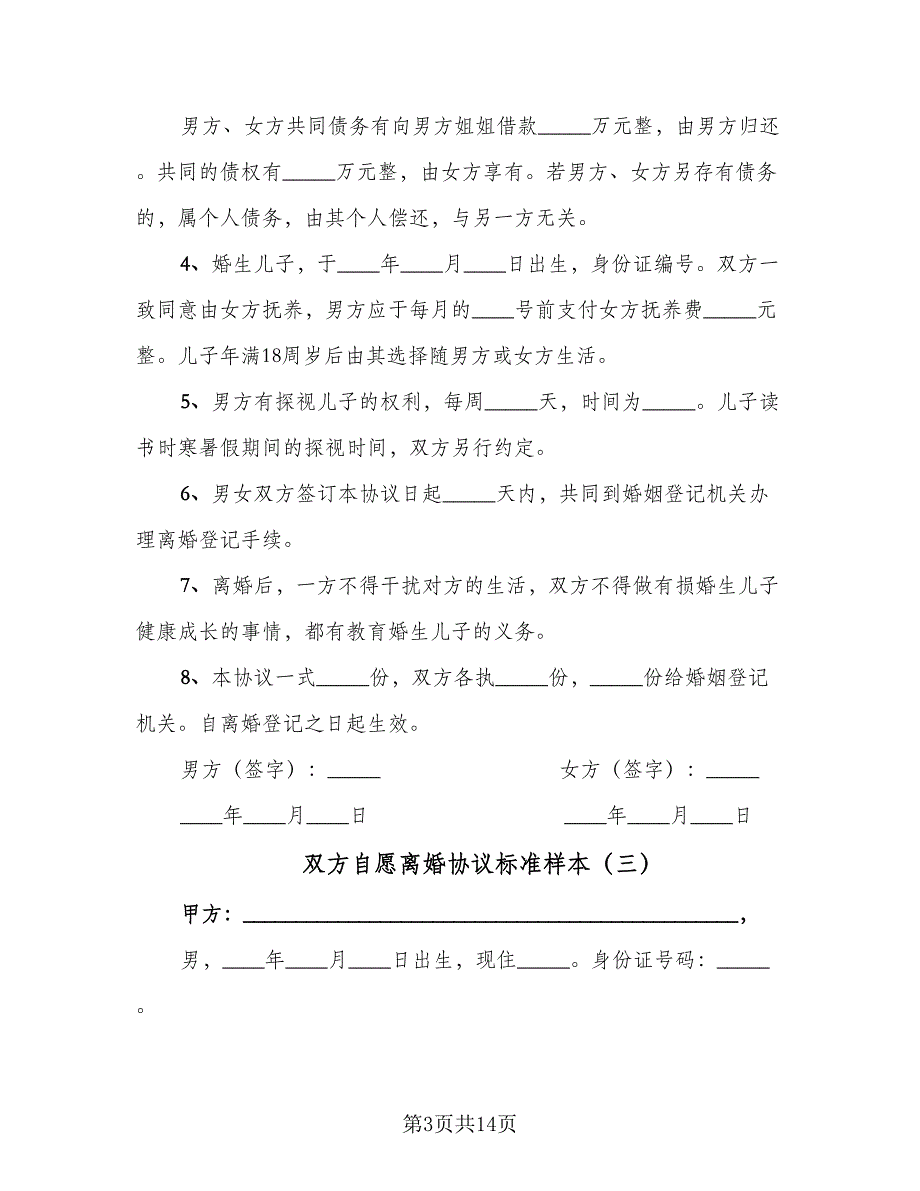 男方、女方共同债务有向男方姐姐借款_____万元整，由男方归还
。共同的债权有_____万元整，由女方享有。若男方、女方另存有债务
的，属个人债务，由其个人偿还，与另一方无关。
4、婚生儿子，于____年____月____日出生，身份证编号。双方一
致同意由女方抚养，男方应于每月的____号前支付女方抚养费_____元
整。儿子年满18周岁后由其选择随男方或女方生活。
5、男方有探视儿子的权利，每周_____天，时间为_____。儿子读
书时寒暑假期间的探视时间，双方另行约定。
6、男女双方签订本协议日起_____天内，共同到婚姻登记机关办
理离婚登记手续。
7、离婚后，一方不得干扰对方的生活，双方不得做有损婚生儿子
健康成长的事情，都有教育婚生儿子的义务。
8、本协议一式_____份，双方各执_____份，_____份给婚姻登记
机关。自离婚登记之日起生效。
男方（签字）：_____ 女方（签字）：_____
____年____月____日 ____年____月____日
双方自愿离婚协议标准样本（三）
甲方：_______________________________________________，
男，____年____月____日出生，现住_____。身份证号码：_____
。
第3页共14页